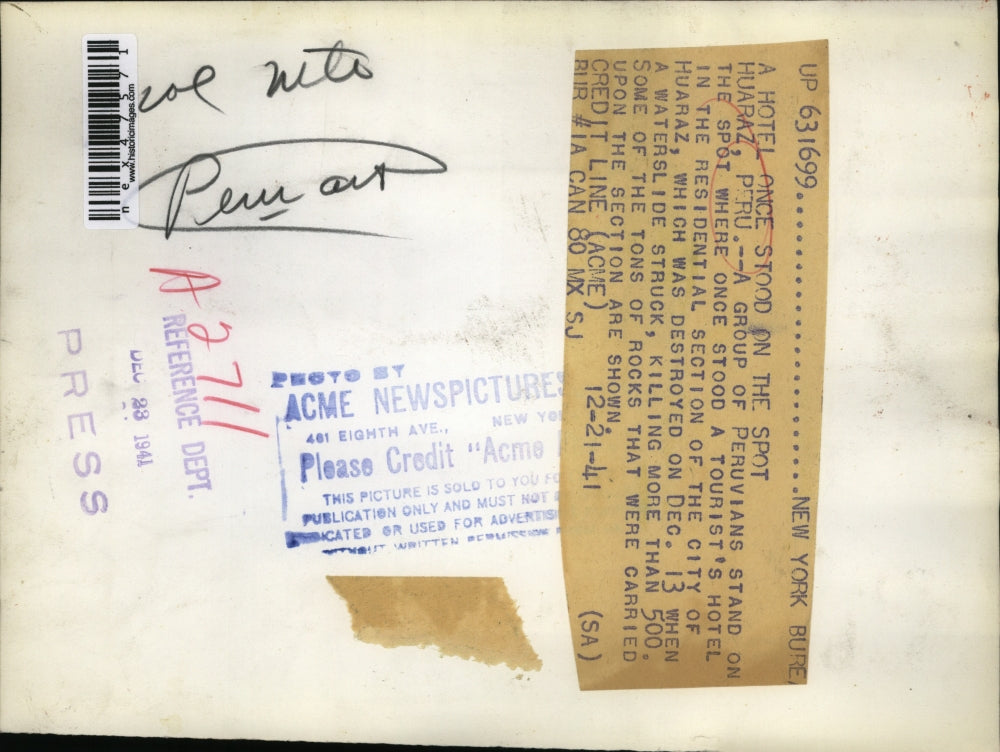 UP 631699..............................NEW YORK BUREA
A HOTEL ONCE STOOD ON THE SPOT
HUARAZ, PERU.--A GROUP OF PERUVIANS STAND ON
THE SPOT WHERE ONCE STOOD A TOURIST'S HOTEL
IN THE RESIDENTIAL SECTION OF THE CITY OF
HUARAZ, WHICH WAS DESTROYED ON DEC. 13 WHEN
A WATERSLIDE STRUCK, KILLING MORE THAN 500.
SOME OF THE TONS OF ROCKS THAT WERE CARRIED
UPON THE SECTION ARE SHOWN.
CREDIT LINE (ACME) 12-21-41 (SA)
BUR #1A CAN 80 MX SJ
nex47571
www.historicimages.com
Peru
A2711
REFERENCE DEPT.
DEC 23 1941
PRESS
PHOTO BY
ACME NEWSPICTURES
461 EIGHTH AVE., NEW YO
Please Credit "Acme
THIS PICTURE IS SOLD TO YOU FO
PUBLICATION ONLY AND MUST NOT
ICATED OR USED FOR ADVERTISI
WITHOUT WRITTEN PERMISSION